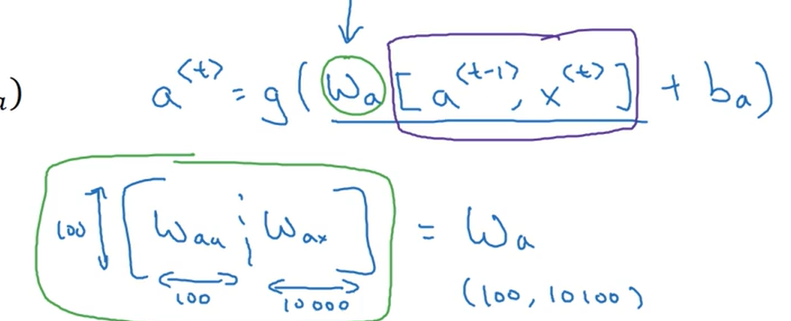 a^{<t>} = g(W_a [a^{<t-1>}, x^{<t>}] + b_a)
100 [W_{aa} ¦ W_{ax}] = W_a
100 10000 (100, 10100)